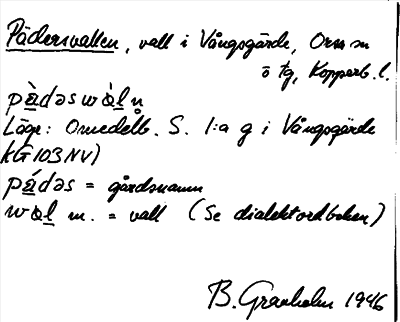 Pädersvallen, vall i Vångsgärde, Orsa sn
ö tg, Kopparb. l.
pä̀dəs wàl n̥
Läge: Omedelb. S. l:a g i Vångsgärde
KG103NV)
pä́dəs = gårdsnamn
wal m. = vall (Se dialektordboken)
B. Granholm 1946